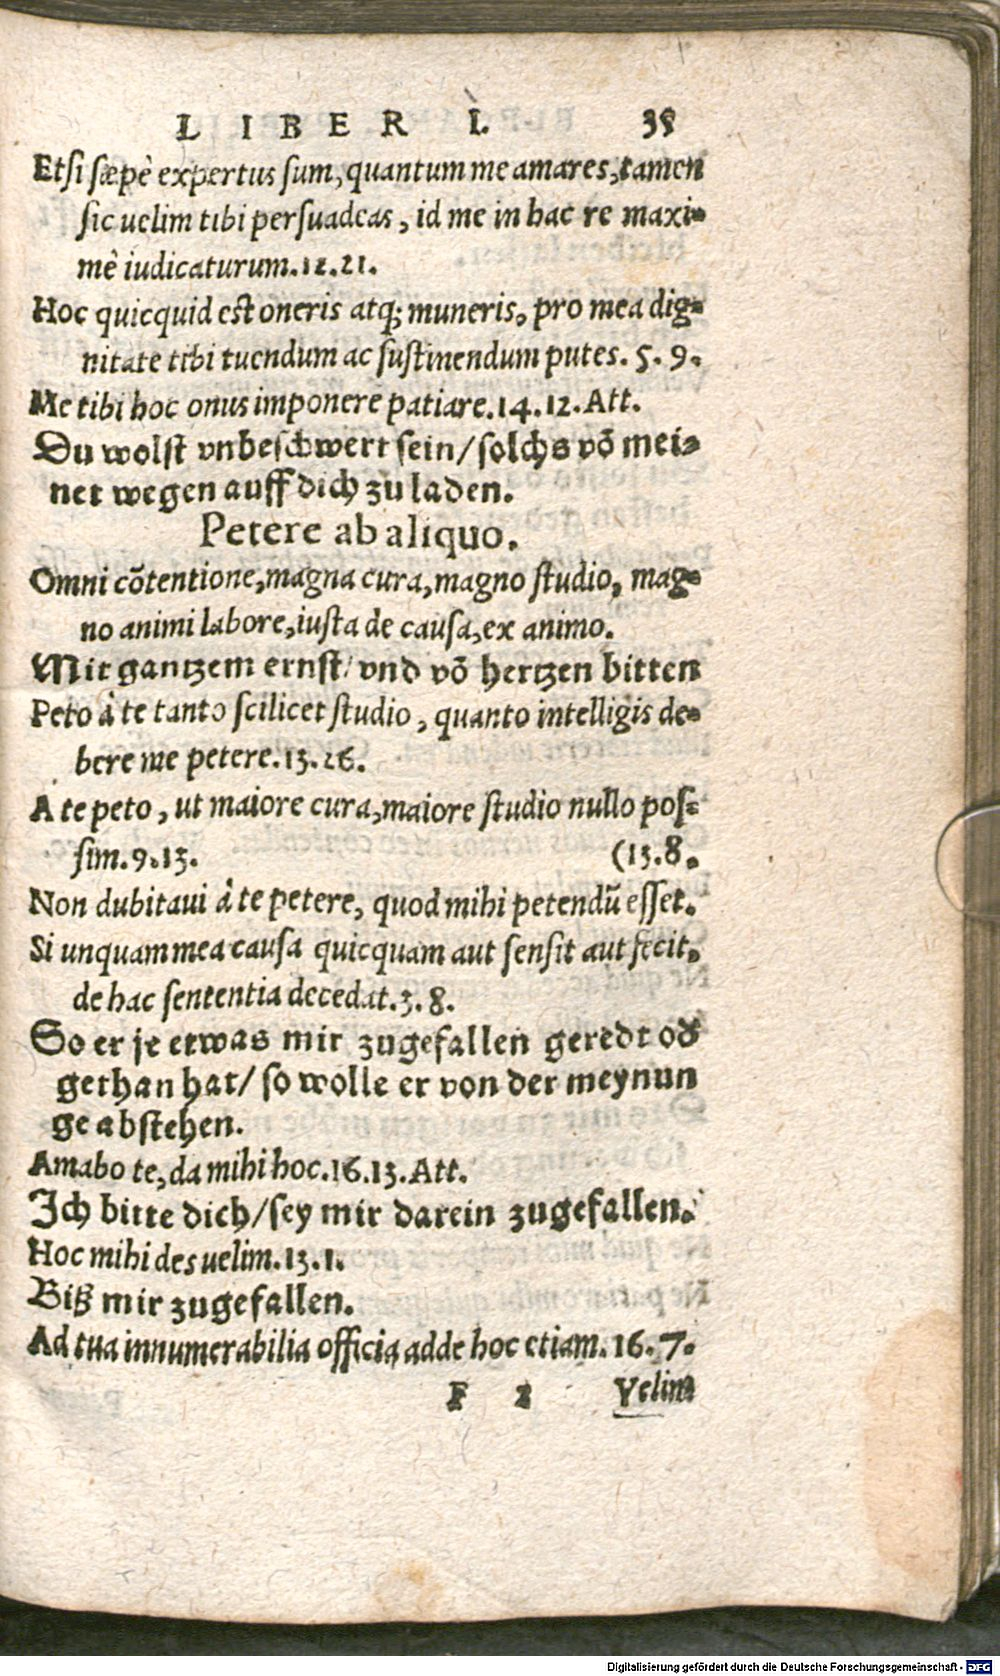 LIBER I. 35
Etsi sæpè expertus sum, quantum me amares, tamen
sic uelim tibi persuadeas, id me in hac re maxi-
mè iudicaturum. 12. 21.
Hoc quicquid est oneris atq; muneris, pro mea dig-
nitate tibi tuendum ac sustinendum putes. 5. 9.
Me tibi hoc onus imponere patiare. 14. 12. Att.
Du wolst vnbeschwert sein/ solchs vō mei-
net wegen auff dich zu laden.
Petere ab aliquo.
Omni cōtentione, magna cura, magno studio, mag-
no animi labore, iusta de causa, ex animo.
Mit gantzem ernst/ vnd vō hertzen bitten
Peto à te tanto scilicet studio, quanto intelligis de-
bere me petere. 13. 26.
A te peto, ut maiore cura, maiore studio nullo pos-
sim. 9. 13. (13. 8.
Non dubitaui à te petere, quod mihi petendū esset.
Si unquam mea causa quicquam aut sensit aut fecit,
de hac sententia decedat. 3. 8.
So er je etwas mir zugefallen geredt oď
gethan hat/ so wolle er von der meynun
ge abstehen.
Amabo te, da mihi hoc. 16. 13. Att.
Ich bitte dich/ sey mir darein zugefallen.
Hoc mihi des uelim. 13. 1.
Biß mir zugefallen.
Ad tua innumerabilia officia adde hoc etiam. 16. 7.
F 2 Velim
Digitalisierung gefördert durch die Deutsche Forschungsgemeinschaft - DFG